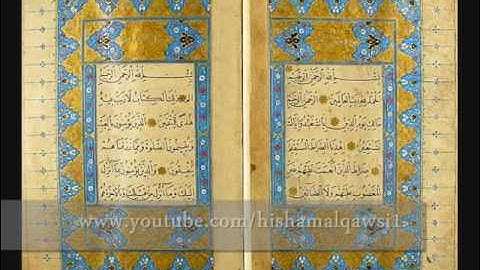 بسم الله الرحمن الرحيم
الحمد لله رب العالمين الرحمن الرحيم
ملك يوم الدين اياك نعبد واياك
نستعين اهدنا الصراط المستقيم
صراط الذين انعمت عليهم غير
المغضوب عليهم ولا الضالين
بسم الله الرحمن الرحيم
الم ذلك الكتاب لا ريب فيه
هدى للمتقين الذين يؤمنون بالغيب
ويقيمون الصلوة ومما رزقناهم
ينفقون والذين يؤمنون بما انزل
اليك وما انزل من قبلك
www.youtube.com/hishamalqawsi1